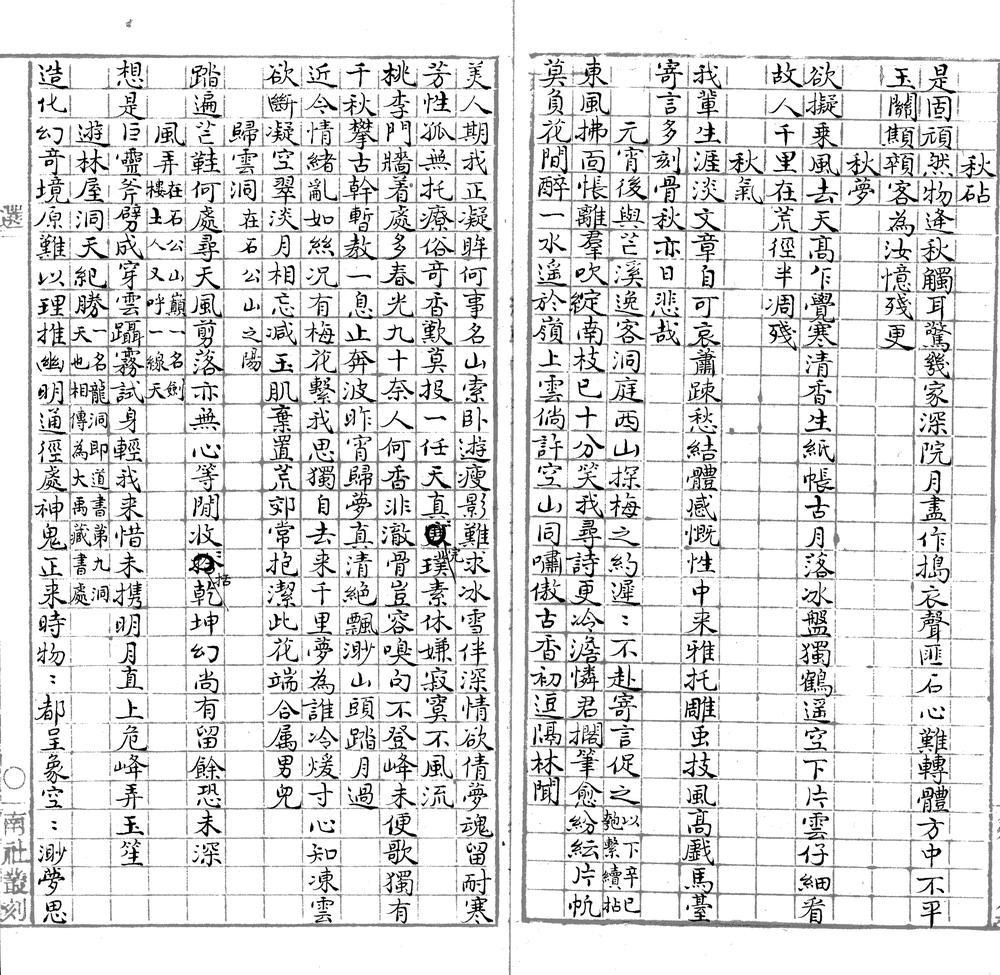 秋砧
是固頑然物逢秋觸耳驚幾家深院月盡作搗衣聲匪石心難轉體方中不平
玉關顦顇客為汝憶殘更
秋夢
欲擬乘風去天高乍覺寒清香生紙帳古月落冰盤獨鶴遥空下片雲仔細看
故人千里在荒徑半凋殘
秋氣
我輩生涯淡文章自可哀蕭踈愁結體感慨性中来雅托雕虫技風高戲馬臺
寄言多刻骨秋亦日悲哉
元宵後與芒溪逸客洞庭西山探梅之約遲：不赴寄言促之 以下辛巳匏繫續拈
東風拂面悵離羣吹綻南枝已十分笑我尋詩更冷澹憐君擱筆愈紛紜片帆
莫負花間醉一水遥於嶺上雲倘許空山同嘯傲古香初逗隔林聞
美人期我正凝眸何事名山索卧遊瘦影難求冰雪伴深情欲倩夢魂留耐寒
芳性孤無托療俗奇香歎莫投一任天真完璞素休嫌寂寞不風流
桃李門牆着處多春光九十奈人何香非澈骨豈容嗅句不登峰未便歌獨有
千秋攀古幹暫教一息止奔波昨宵歸夢直清絕飄渺山頭踏月過
近今情緒亂如絲況有梅花繫我思獨自去来千里夢為誰冷煖寸心知凍雲
欲斷凝空翠淡月相忘减玉肌棄置荒郊常抱潔此花端合属男兒
歸雲洞 在石公山之陽
踏遍芒鞋何處尋天風剪落亦無心等閒收拾乾坤幻尚有留餘恐未深
風弄 在石公山巔一名劍樓土人又呼一線天
想是巨靈斧劈成穿雲躡霧試身輕我来惜未携明月直上危峰弄玉笙
遊林屋洞天紀勝 一名龍洞即道書第九洞天也相傳為大禹藏書處
造化幻奇境原難以理推幽明通徑處神鬼正来時物：都呈象空：渺夢思
選
○
南社叢刻